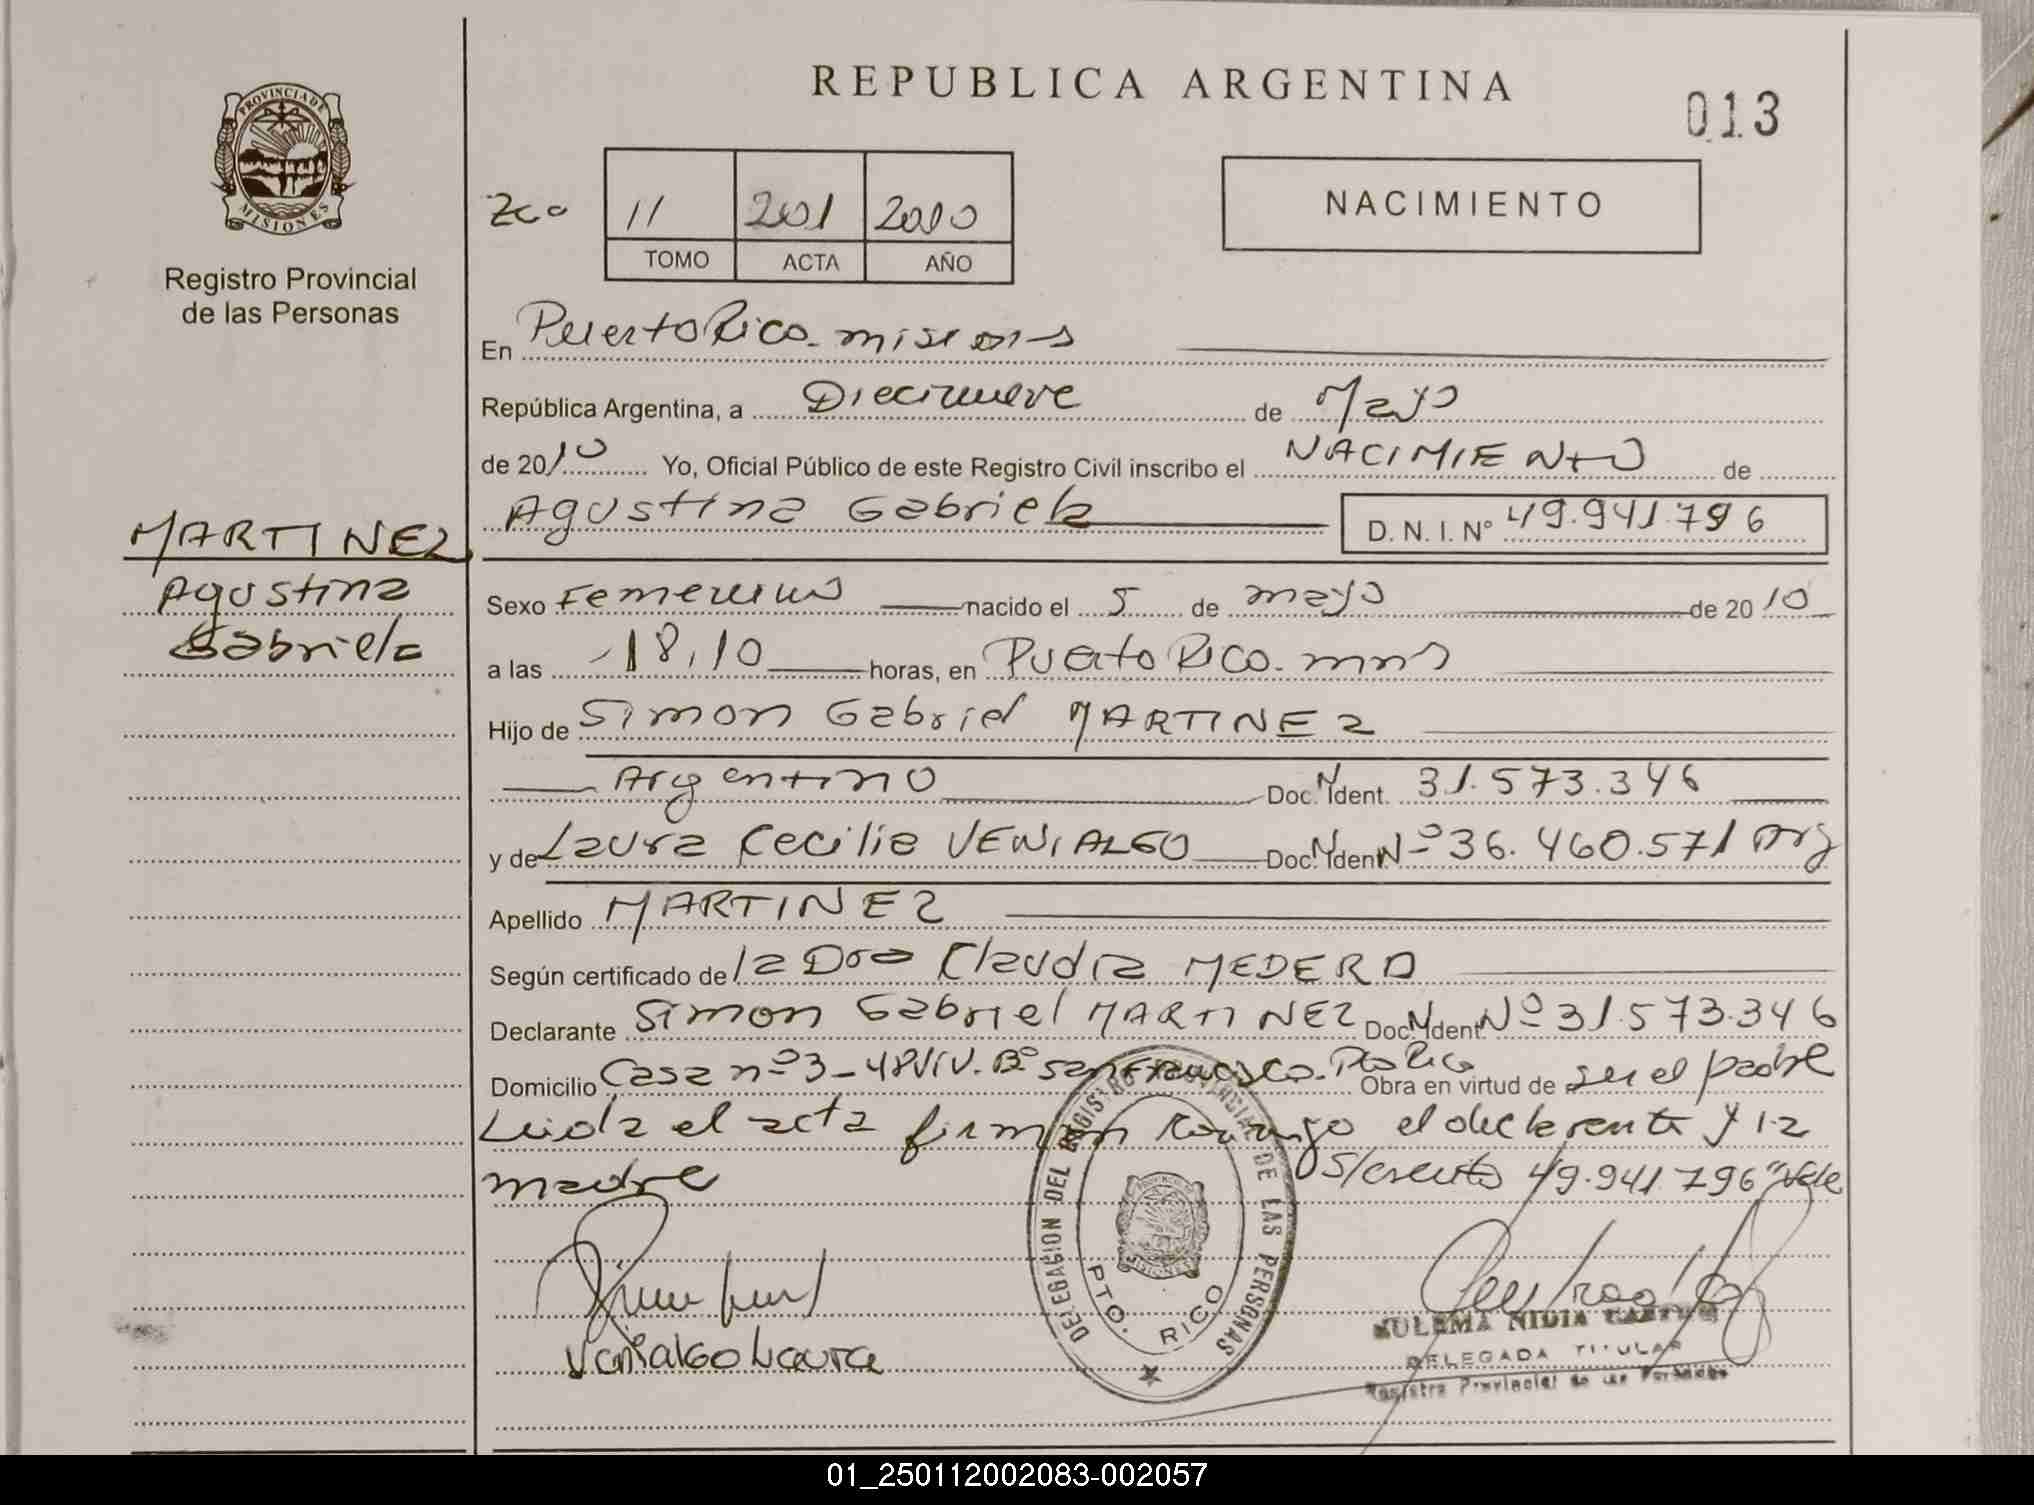 REPUBLICA ARGENTINA
013
PROVINCIA DE
MISIONES
Registro Provincial
de las Personas
11 201 2010
TOMO ACTA AÑO
NACIMIENTO
En Puerto Rico. misiones
República Argentina, a Diecinueve de Mayo
de 2010 Yo, Oficial Público de este Registro Civil inscribo el NACIMIENTO de
Agustina Gabriela D. N. I. Nº 49.941.796
MARTINEZ
Agustina
Gabriela
Sexo Femenino nacido el 5 de mayo de 2010
a las 18,10 horas, en Puerto Rico. mns
Hijo de Simon Gabriel MARTINEZ
Argentino Doc. Ident. 31.573.346
y de Laura Cecilia VENIALGO Doc. Ident Nº 36.460.571 Arg
Apellido MARTINEZ
Según certificado de la Dra Claudia MEDERO
Declarante Simon Gabriel MARTINEZ Doc. Ident Nº 31.573.346
Domicilio Casa nº 3-48 Viv. Bº San Francisco. Pto Rico Obra en virtud de ser el padre
Leida el acta firman conmigo el declarante y la
madre S/escrito 49.941.796 "Vale
DELEGACION DEL REGISTRO PROVINCIAL DE LAS PERSONAS
MISIONES
PTO. RICO
Venialgo Laura
ZULEMA NIDIA CASTRO
DELEGADA TITULAR
Registro Provincial de las Personas
01_250112002083-002057